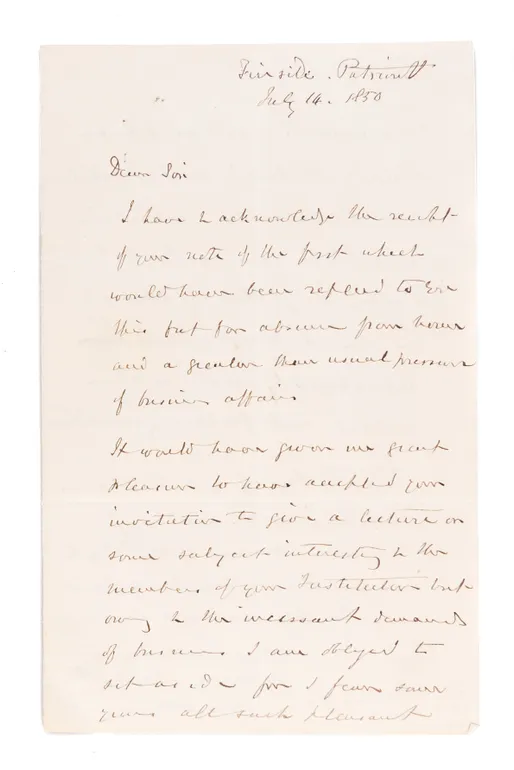 July 14. 1850
Dear Sir
I have to acknowledge the receipt
of your note of the first which
would have been replied to ere
this but for absence from home
and a greater than usual pressure
of business affairs
It would have given me great
pleasure to have accepted your
invitation to give a lecture on
some subject interesting to the
members of your Institution but
owing to the incessant demands
of business I am obliged to
set aside for I fear some
years all such pleasant